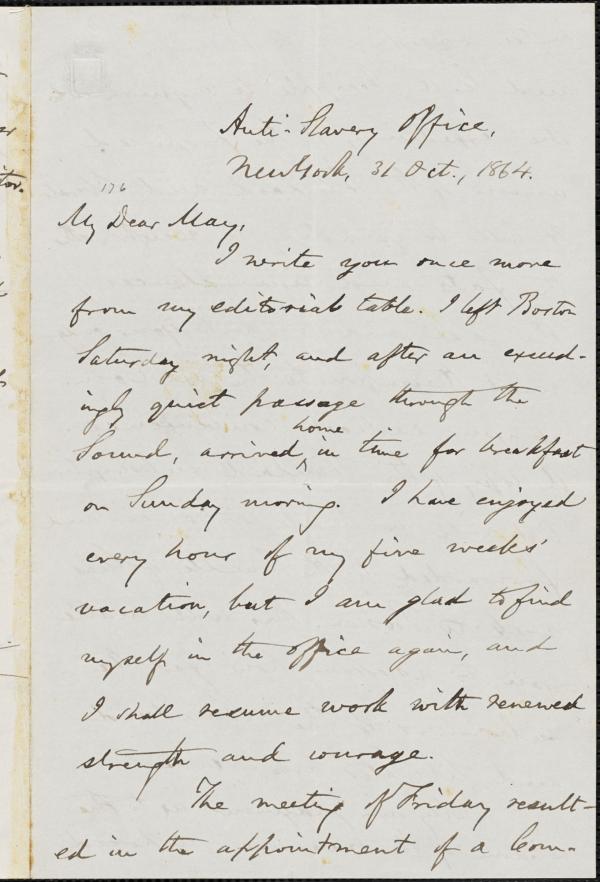 Anti-Slavery Office,
New York, 31 Oct., 1864.
176
My Dear May,
I write you once more
from my editorial table. I left Boston
Saturday night, and after an exceed-
ingly quiet passage through the
home
Sound, arrived ‸ in time for breakfast
on Sunday morning. I have enjoyed
every hour of my five weeks'
vacation, but I am glad to find
myself in the office again, and
I shall resume work with renewed
strength and courage.
The meeting of Friday result-
ed in the appointment of a Com-